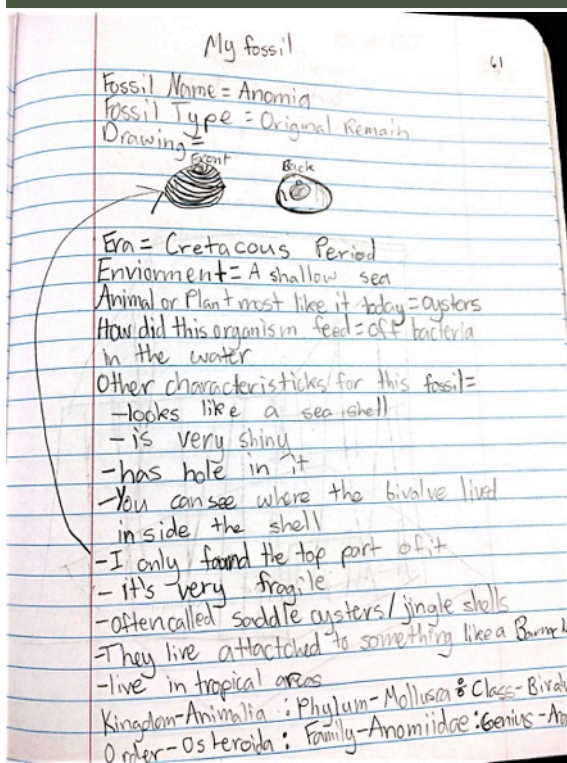 My fossil
61
Fossil Name = Anomia
Fossil Type = Original Remain
Drawing =
Front Back
Era = Cretacous Period
Enviorment = A shallow sea
Animal or Plant most like it today = oysters
How did this organism feed = off bacteria
in the water
Other characteristicks for this fossil =
-looks like a sea shell
- is very shiny
-has hole in it
-You can see where the bivalve lived
inside the shell
-I only found the top part of it
- it's very fragile
-often called saddle oysters / jingle shells
-They live attactched to something like a
-live in tropical areas
Kingdom-Animalia : Phylum-Mollusca : Class-
Order-Osteroida : Family-Anomiidae : Genius-